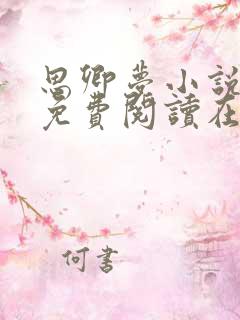 思卿夢小說
免費閱讀在
何書